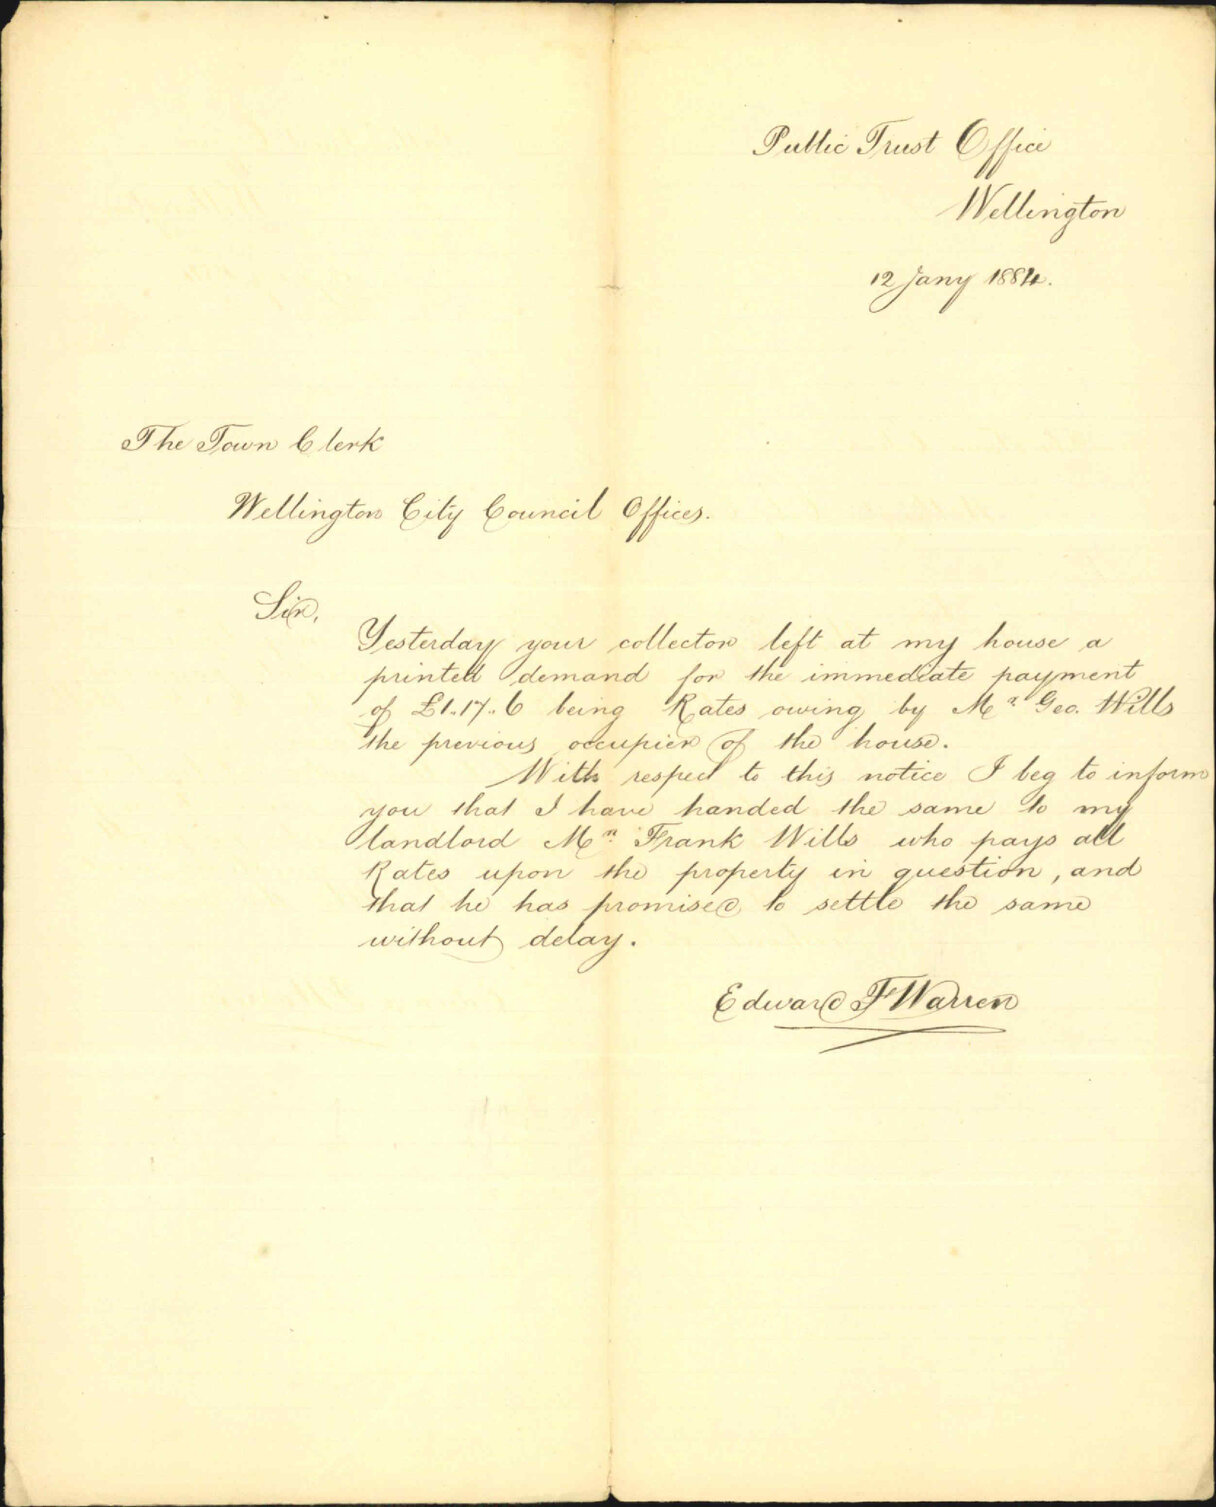 Public Trust Office
Wellington
12 Jany 1884.
The Town Clerk
Wellington City Council Offices.
Sir,
Yesterday your collector left at my house a
printed demand for the immediate payment
of £1..17..6 being Rates owing by Mr Geo. Wills
the previous occupier of the house.
With respect to this notice I beg to inform
you that I have handed the same to my
landlord Mr. Frank Wills who pays all
Rates upon the property in question, and
that he has promised to settle the same
without delay.
Edward F Warren